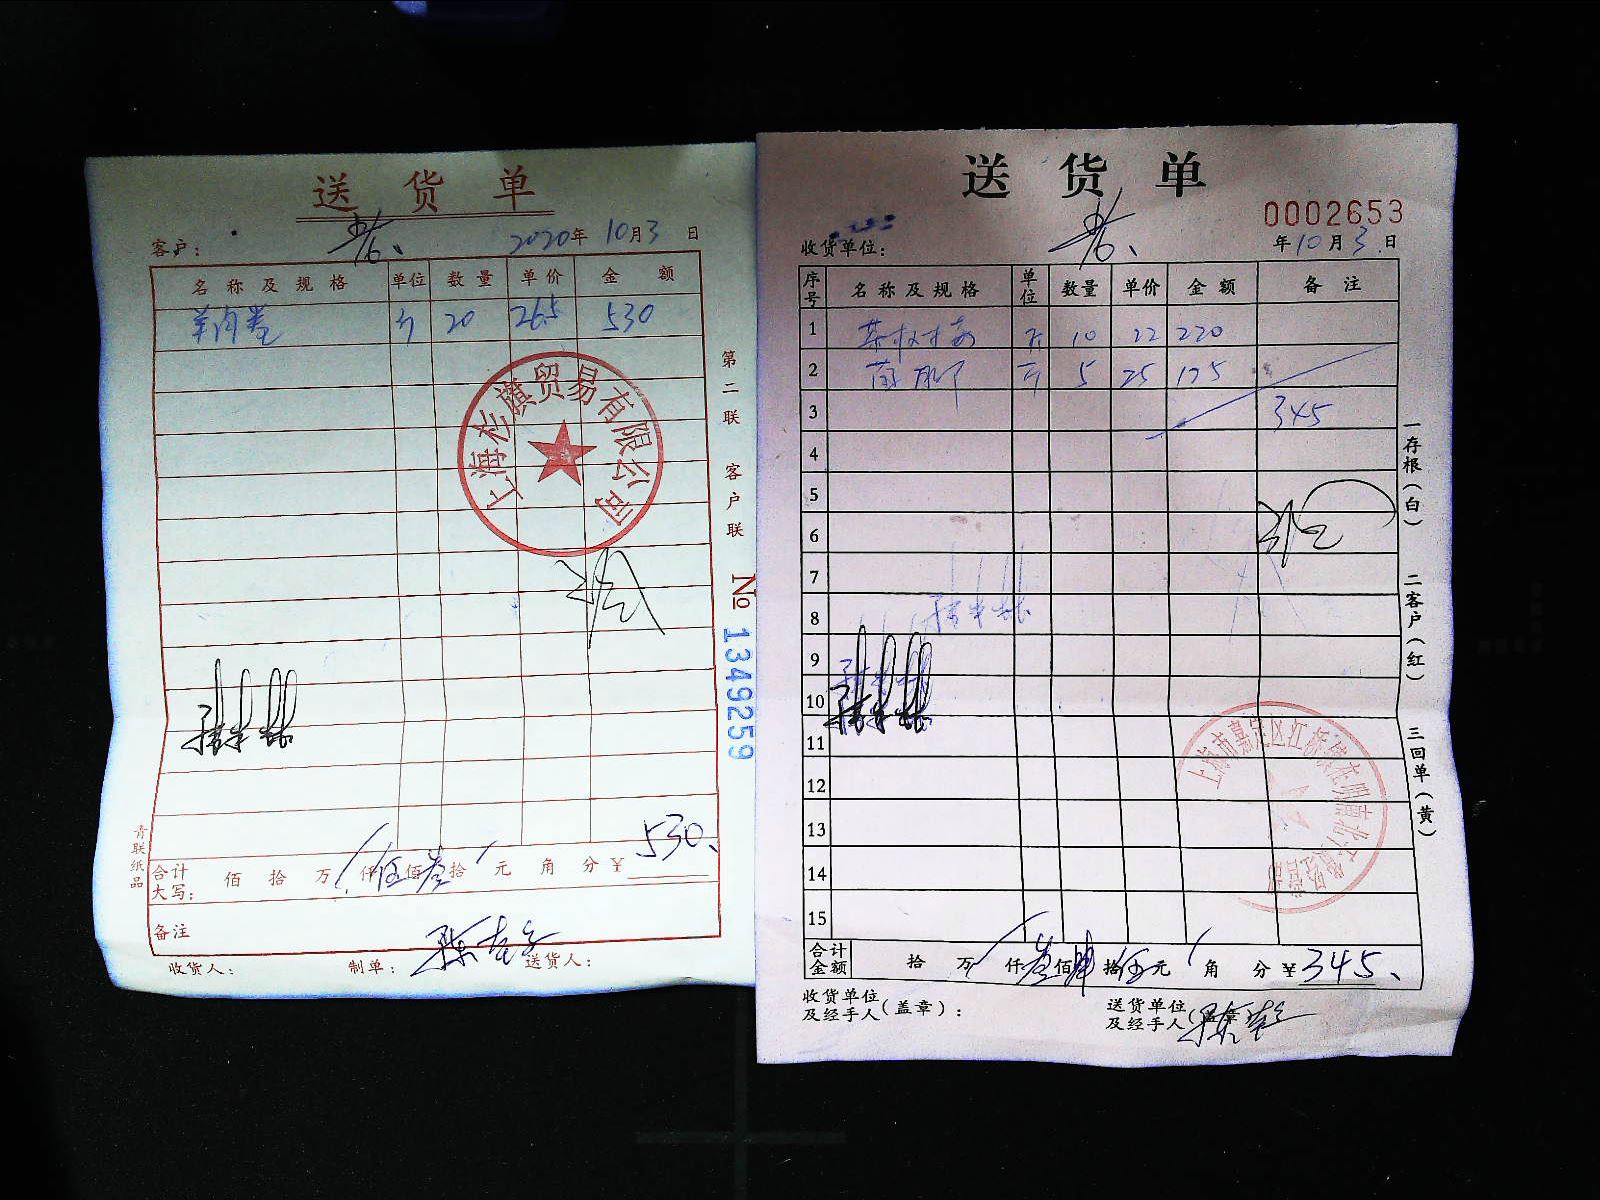 送 货 单
客户：
2020年10月3日
名 称 及 规 格 单位 数 量 单 价 金 额
羊肉卷 斤 20 26.5 530
上海杉旗贸易有限公司
第二联 客户联
№ 1349259
青联纸品
合计大写： 佰 拾 万 仟伍佰叁拾 元 角 分 ¥ 530
备注
收货人： 制单： 送货人：
送 货 单
0002653
收货单位： 年10月3日
序号 名 称 及 规 格 单位 数量 单价 金 额 备 注
1 斤 10 22 220
2 斤 5 25 125
3 345
4
5
6
7
8
9
10
11
12
13
14
15
一存根（白） 二客户（红） 三回单（黄）
合计金额 拾 万 仟叁佰肆拾伍元 角 分 ¥345
收货单位及经手人（盖章）： 送货单位及经手人（盖章）